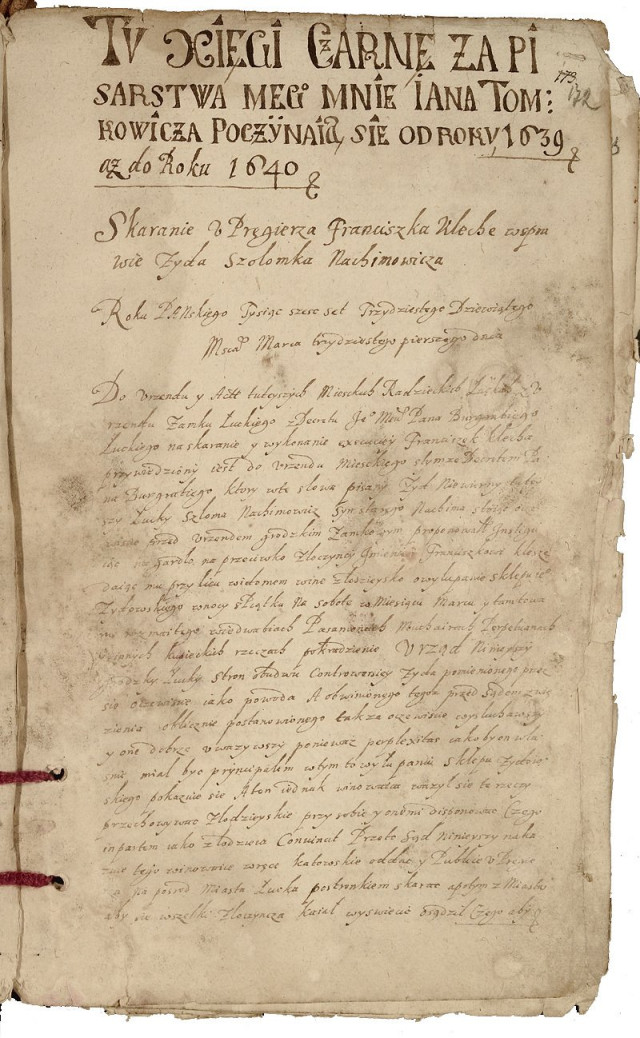 TV XIĘGI CZARNE ZA PI
SARSTWA MEGo MNIE IANA TOM:
KOWICZA POCZŸNAIĄ SIE OD ROKU 1639
aż do Roku 1640
173
172
Skaranie v Pręgierza Franciszka Kleche wspra
wie Żyda Szolomka Nachimowicza
Roku PANskiego Tysiąc szesc set Trzydziestego Dziewiątego
Msca Marca trzydziestego pierszego dnia
Do Vrzendu y Act tuteyszych Mieskich Radzieckich
rzendu Zamku Łuckiego z Decretu Pana Burgrabiego
Łuckiego na skaranie y wykonanie execuciey Franciszek Klecha
przywiedziony iest do Vrzendu Mieskiego stymze Decretem Pa
na Burgrabiego ktory wte słowa pisany Żyd Niewierny
Łucky Szloma Nachimowicz Syn starego Nachima
przed Vrzendem grodzkim Zamkowym
na gardło na przeciwko Złoczyncy Franciszkowi
daiąc mu przy licu wiadomem wine złodzieysko o wyłupanie sklepu
Żydowskiego wnocy sPiątku na sobote wMiesiącu Marcu y
Pasamonach Muchairach Perpetuanach
kupieckich rzeczach pokradzienie VRZĄD Ninieyszy
Łucky stron obudwu Controversiey Żyda pomienionego prze
sie oczewisto iako powoda A obwinionego tegoz przed Sądem
oblicznie postanowionego takze oczewisto wysłuchawszy
y one dobrze vwazywszy poniewaz perplexitas iakoby on wła
snie miał byc pryncipałem wtym to wyłupaniu Sklepu Żydow
skiego pokazuie sie A ten iednak winowatca wazył sie te rzeczy
przechowywac złodzieyskie przy sobie y onemi disponowac Czego
inpartem iako złodzieia Convincit Przeto Sąd Ninieyszy naka
zuie tego winowatce wręce katowskie oddac y Publice v Pręgie
rza posrod Miasta Łucka postronkiem skarac a potym z Miasta
aby sie wszelki Złoczynca kaiał wyswiecic osądził Czego aby